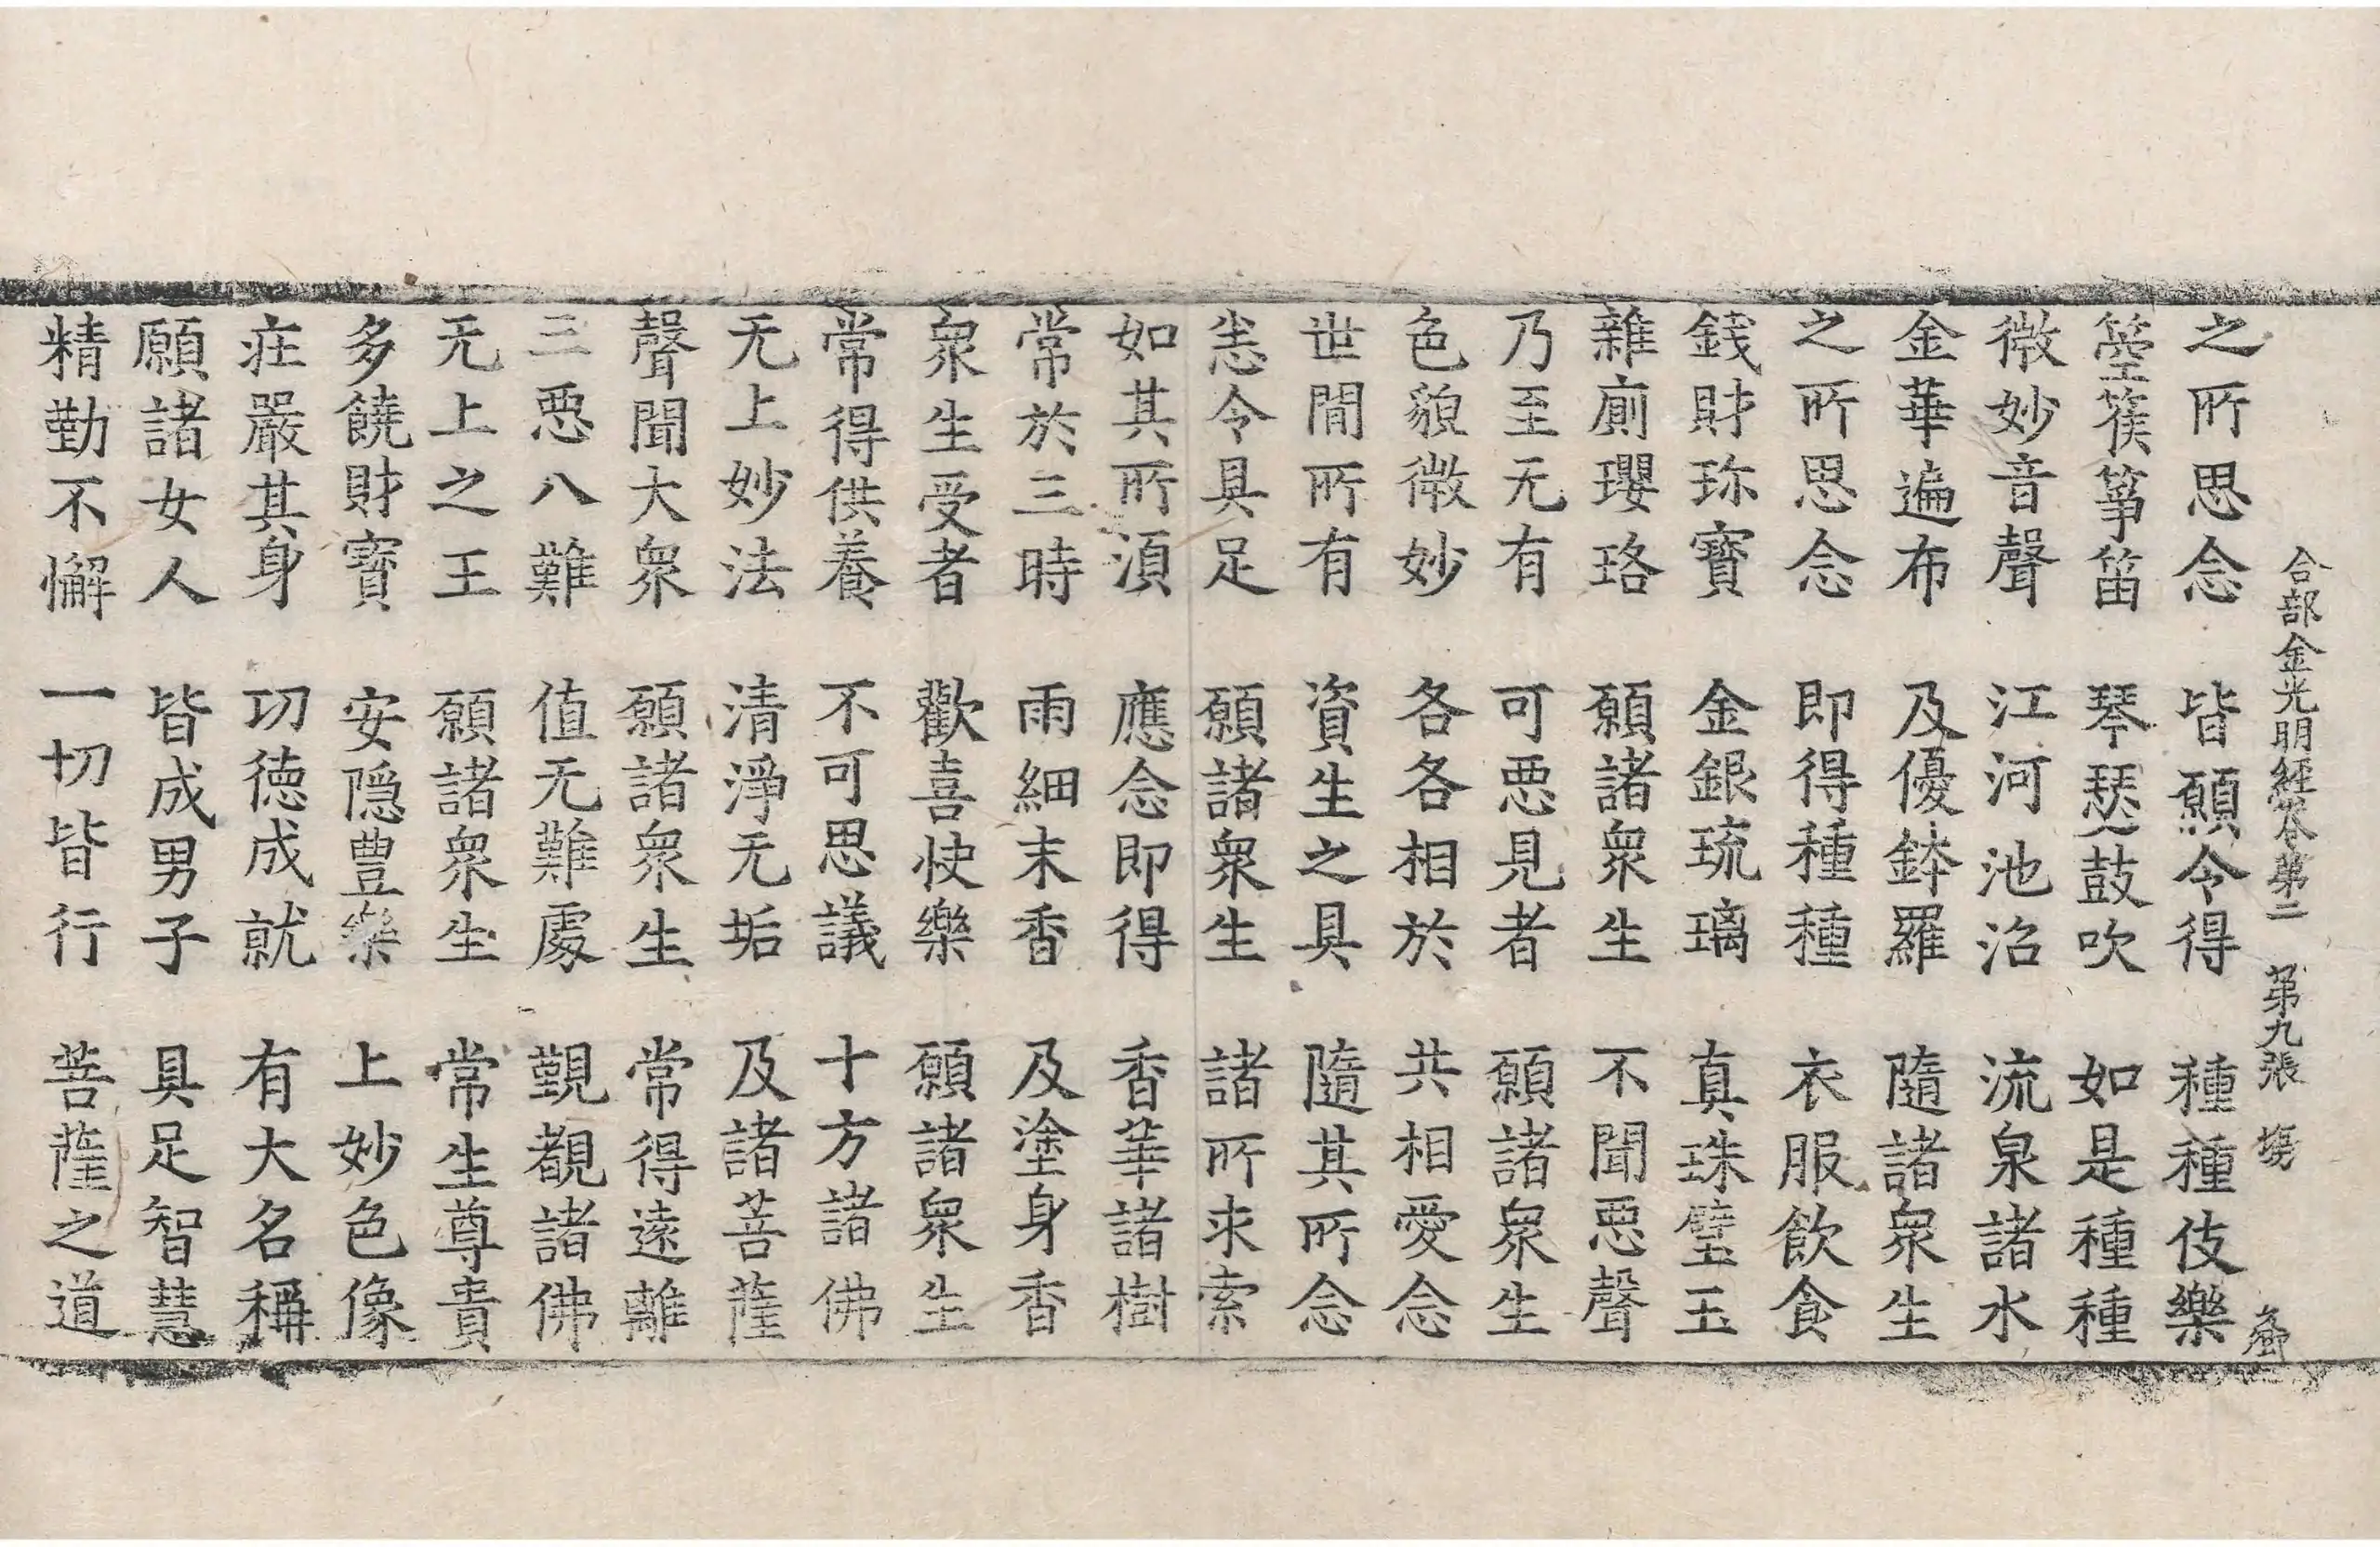 合部金光明經卷第二 第九張 塲
之所思念 皆願令得 種種伎樂
箜篌筝笛 琴瑟鼓吹 如是種種
微妙音聲 江河池沼 流泉諸水
金華遍布 及優鉢羅 隨諸衆生
之所思念 即得種種 衣服飲食
錢財珎寶 金銀琉璃 真珠璧玉
雜廁瓔珞 願諸衆生 不聞惡聲
乃至无有 可惡見者 願諸衆生
色貌微妙 各各相於 共相愛念
世間所有 資生之具 隨其所念
悉令具足 願諸衆生 諸所求索
如其所湏 應念即得 香華諸樹
常於三時 雨細末香 及塗身香
衆生受者 歡喜快樂 願諸衆生
常得供養 不可思議 十方諸佛
无上妙法 清淨无垢 及諸菩薩
聲聞大衆 願諸衆生 常得遠離
三惡八難 值无難處 覲覩諸佛
无上之王 願諸衆生 常生尊貴
多饒財寶 安隱豊樂 上妙色像
莊嚴其身 功德成就 有大名稱
願諸女人 皆成男子 具足智慧
精勤不懈 一切皆行 菩薩之道